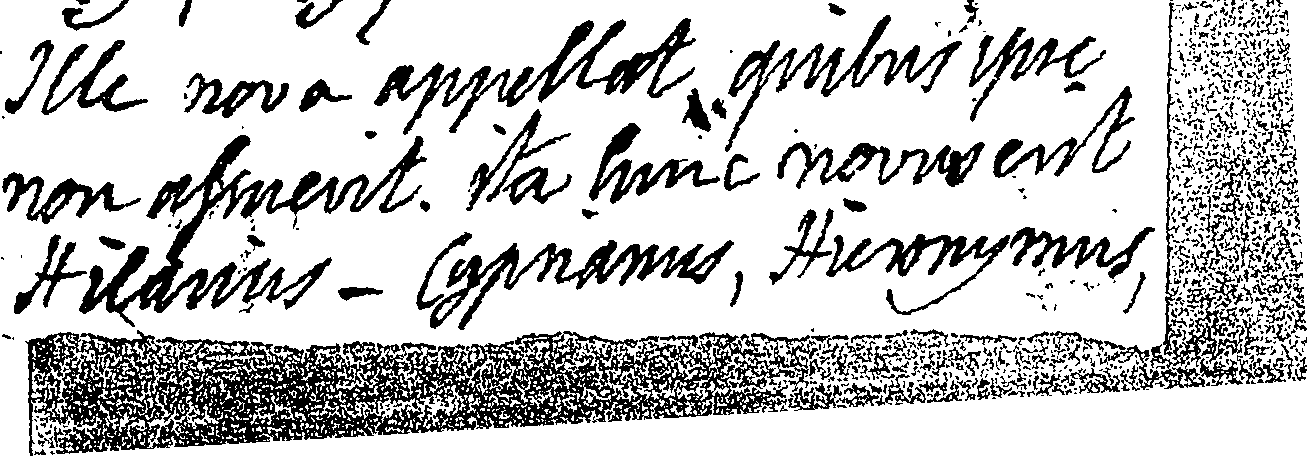 Ille nova appellat, quibus ipse
non assuevit. ita hinc novus erit
Hilarius - Cyprianus, Hieronymus,